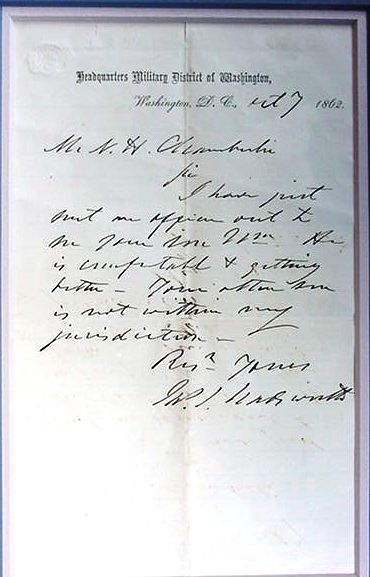 Headquarters Military District of Washington,
Washington, D. C., Oct 7 1862.
Mr N. H. Chamberlin
Sir
I have just
sent an officer out to
see your son Wm. He
is comfortable & getting
better - Your other son
is not within my
jurisdiction -
Resy Yours
Jas. S. Wadsworth